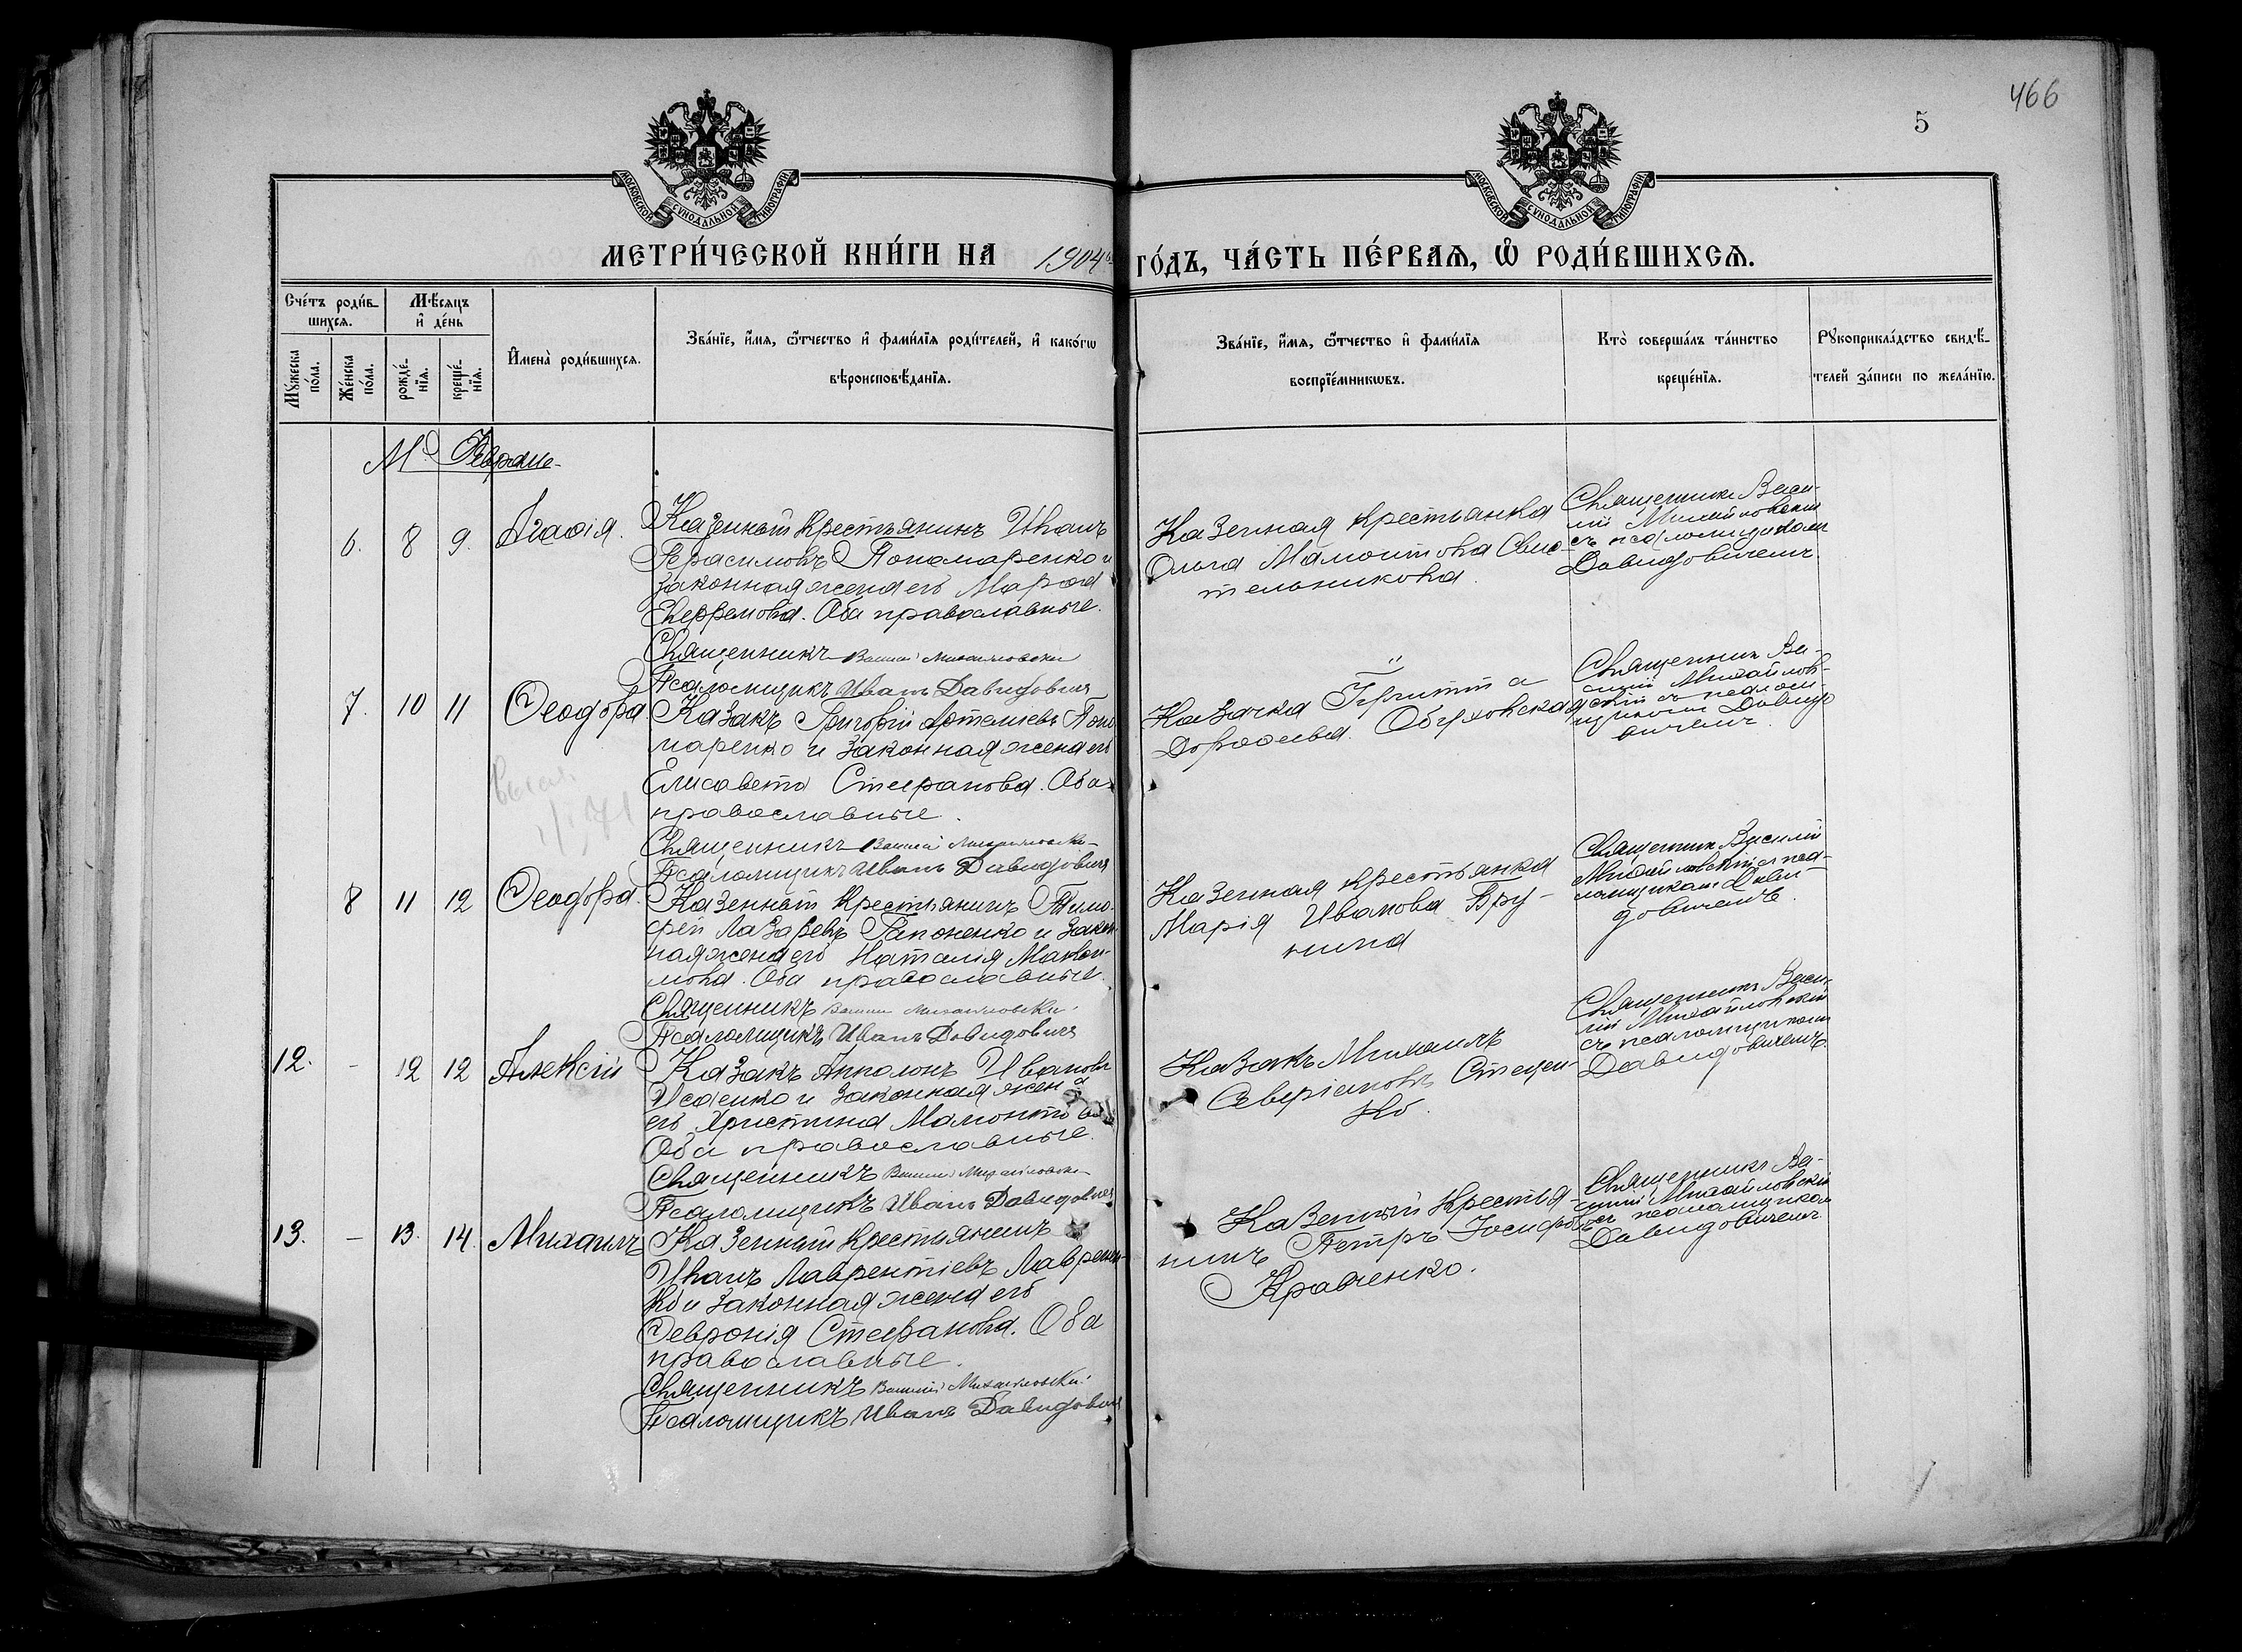 466
5
МОСКОВСКОЙ СУНОДАЛЬНОЙ ТИПОГРАФІИ
МОСКОВСКОЙ СУНОДАЛЬНОЙ ТИПОГРАФІИ
МЕТРИ́ЧЕСКОЙ КНИ́ГИ НА 1904 ГО́ДЪ, ЧА́СТЬ ПЕ́РВАѦ, Ѡ҆ РОДИ́ВШИХСѦ.
Сче́тъ роди́в-
шихсѧ.
Мꙋжеска по́ла.
Же́нска по́ла.
Мѣ́сѧцъ
и҆ де́нь
рожде́-
нїѧ.
креще́-
нїѧ.
И҆мена̀ роди́вшихсѧ.
Зва́нїе, и҆́мѧ, ѻ҆́тчество и҆ фами́лїѧ роди́телей, и҆ како́гѡ
вѣроисповѣ́данїѧ.
Зва́нїе, и҆́мѧ, ѻ҆́тчество и҆ фами́лїѧ
воспрїе́мникѡвъ.
Кто̀ соверша́лъ та́инство
креще́нїѧ.
Рꙋкоприкла́дство свидѣ́-
телей за́писи по жела́нїю.
Мц Февраль
6. 8 9. Агаѳія.
Казенный крестьянинъ Иванъ
Герасимовъ Пономаренко и
законная жена его Марѳа
Евфремова. Оба православные.
Священникъ Василій Михайловскій
Псаломщикъ Иванъ Давидовичъ
Казенная крестьянка
Ольга Мамонтова
тельникова.
Священникъ Васи-
лій Михайловскій
съ псаломщикомъ
Давидовичемъ.
7. 10 11 Ѳеодора
Казакъ Григорій Артеміевъ Поно
маренко и законная жена его
Елисавета Стефанова. Оба
православные.
Священникъ Василій Михайловскій
Псаломщикъ Иванъ Давидовичъ
Казачка
Дороѳеева. Обуховская
Священникъ Ва-
силій Михайлов-
скій съ псалом-
щикомъ Давидо
вичемъ.
8 11 12 Ѳеодора.
Казенный крестьянинъ Тимо-
фей Лазаревъ Гапоненко и закон
ная жена его Наталія
мова. Оба православные.
Священникъ Василій Михайловскій
Псаломщикъ Иванъ Давидовичъ
Казенная крестьянка
Марія Иванова Бру-
нина
Священникъ Василій
Михайловскій съ пса-
ломщикомъ Дави-
довичемъ.
12. - 12 12 Алексій
Казакъ Апполонъ Ивановъ
Исаенко и законная жена
его Христина Мамонтова
Оба православные.
Священникъ Василій Михайловскій
Псаломщикъ Иванъ Давидовичъ
Казакъ Михаилъ
Северіановъ Стецен-
ко.
Священникъ Васи-
лій Михайловскій
съ псаломщикомъ
Давидовичемъ.
13. - 13. 14. Михаилъ
Казенный крестьянинъ
Иванъ Лаврентіевъ Лаврен-
ко и законная жена его
Февронія Стефанова. Оба
православные.
Священникъ Василій Михайловскій
Псаломщикъ Иванъ Давидовичъ
Казенный крестья-
нинъ Петръ Іосифовъ
Кравченко.
Священникъ Ва-
силій Михайловскій
съ псаломщикомъ
Давидовичемъ